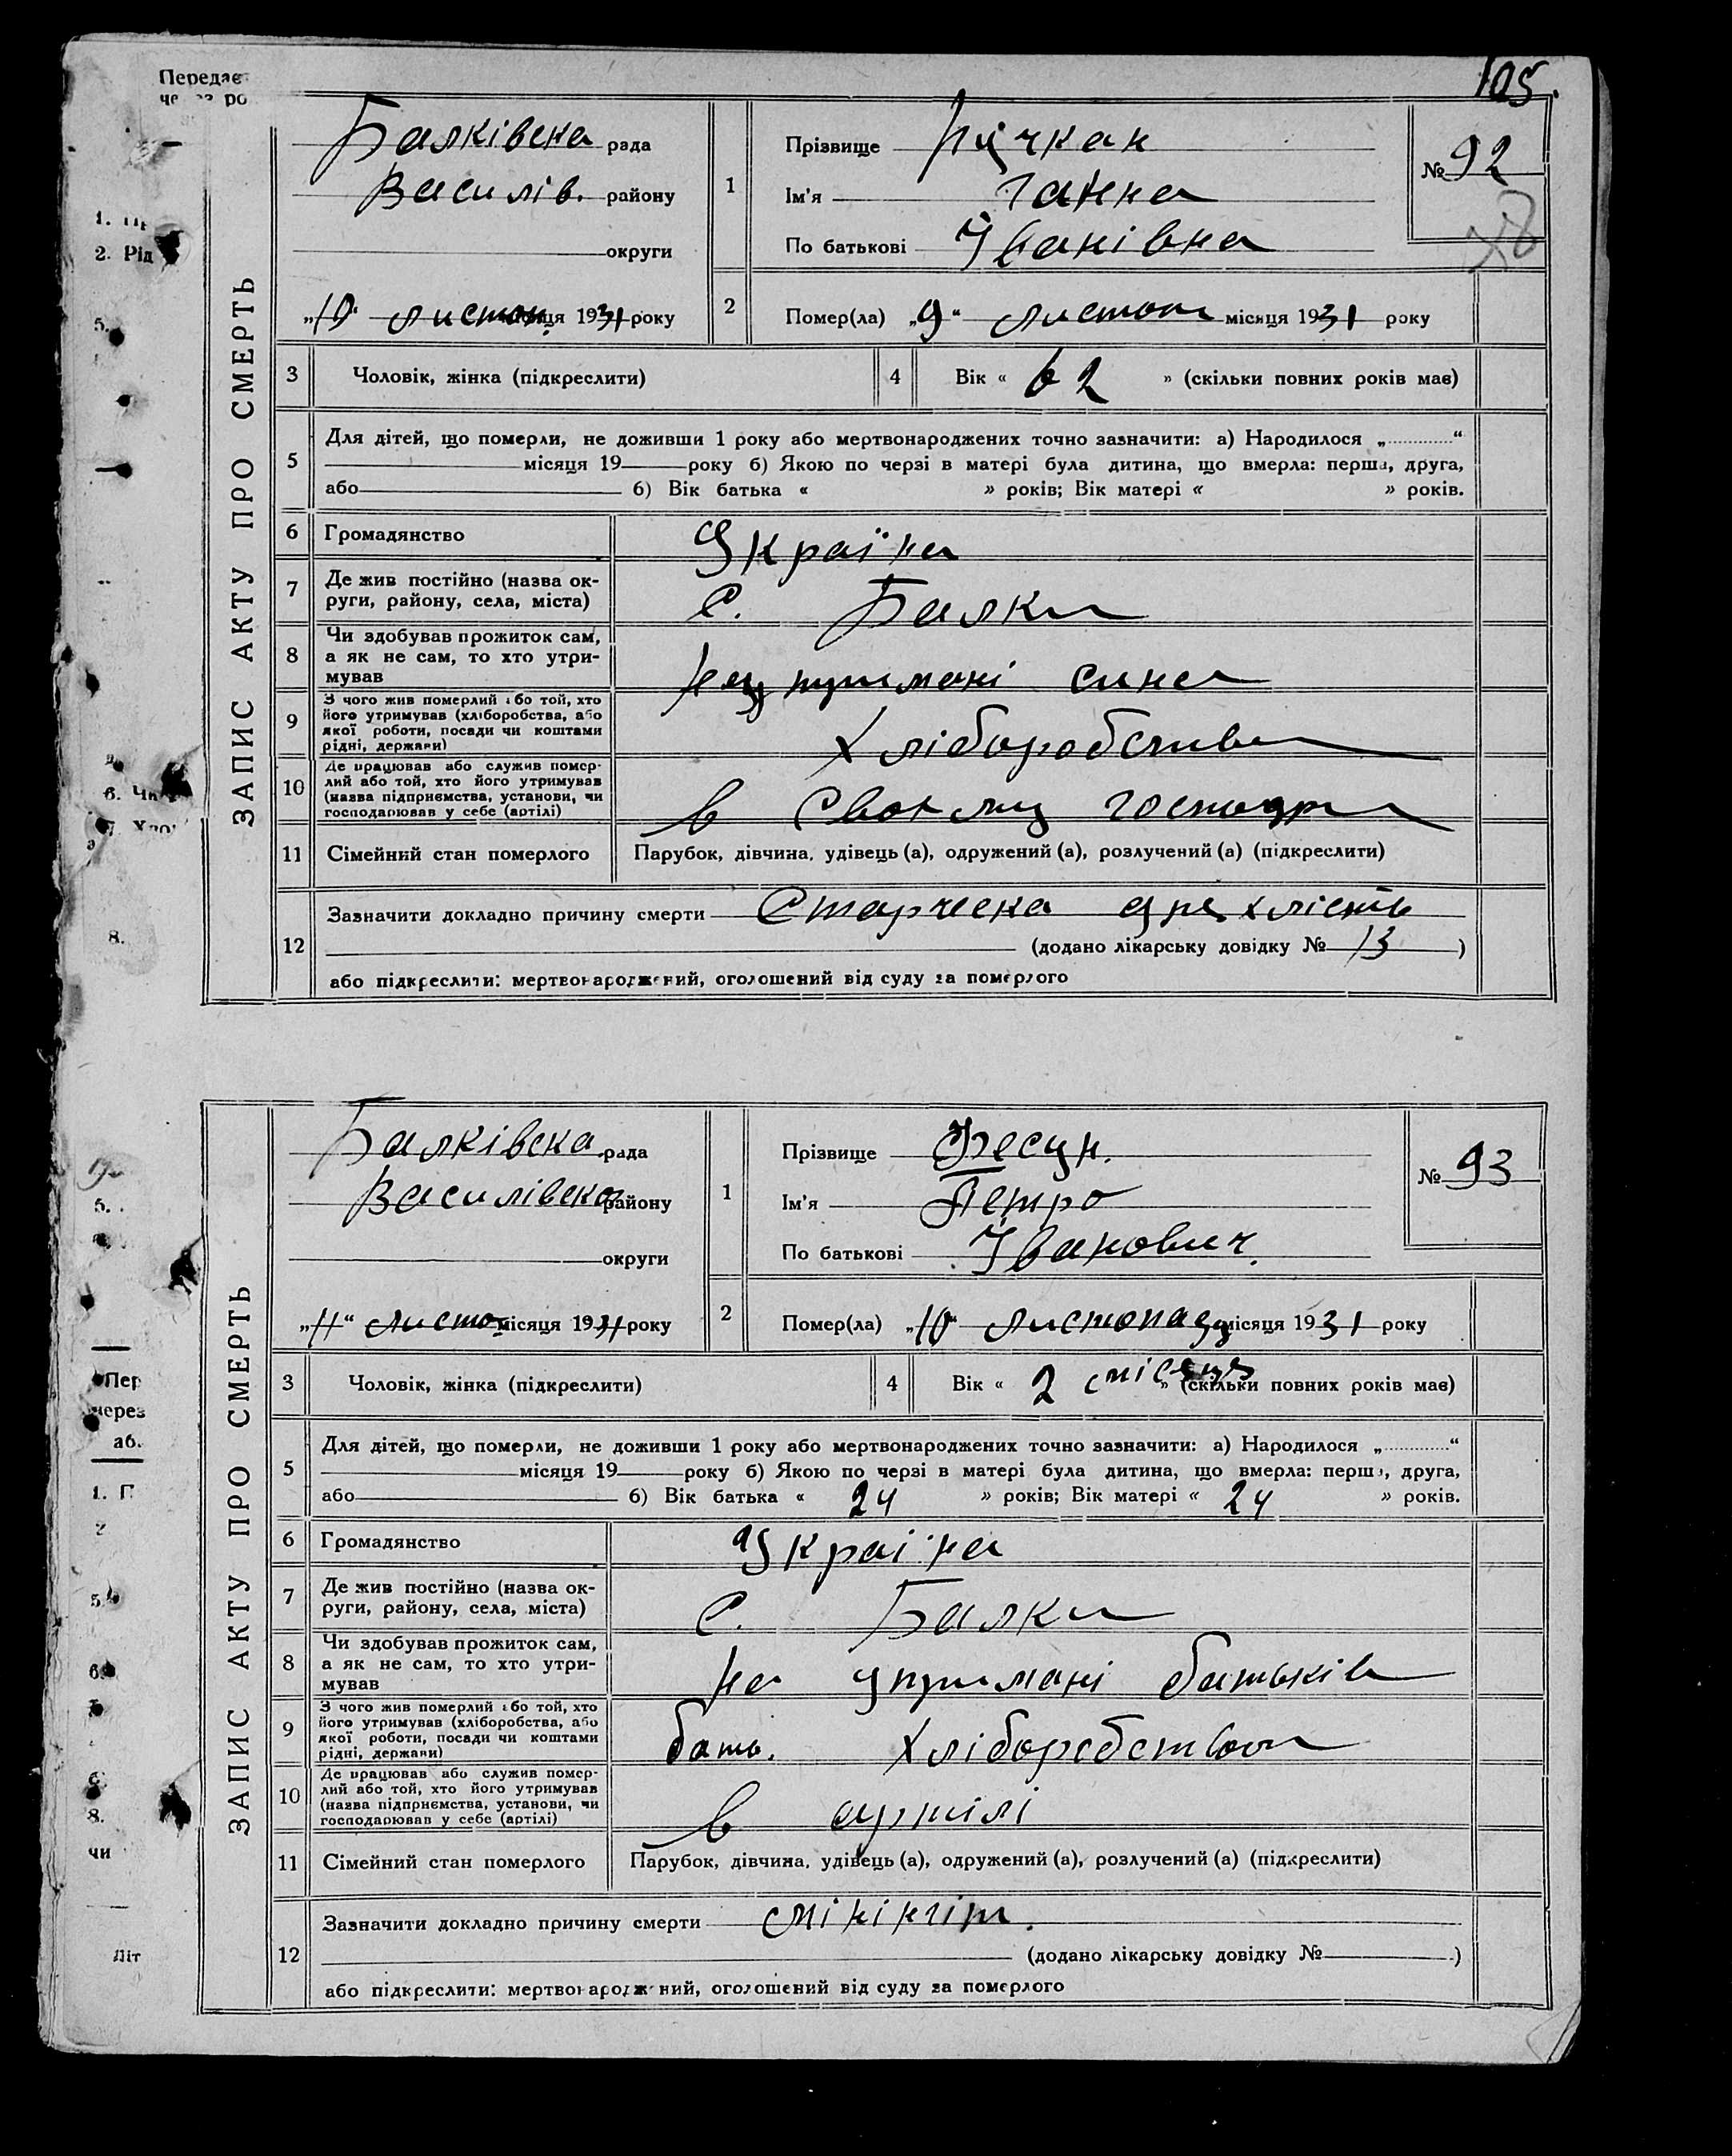 105.
Передає
через ро
ЗАПИС АКТУ ПРО СМЕРТЬ
Балківска рада
Василів. району
округи
„10“ листоп. місяця 1931 року
1
Прізвище
Ім'я Ганна
По батькові Іванівна
№ 92
2
Помер(ла) „9“ листоп місяця 1931 року
3 Чоловік, жінка (підкреслити)
4 Вік « 62 » (скільки повних років має)
5
Для дітей, що померли, не доживши 1 року або мертвонароджених точно зазначити: а) Народилося „ “
місяця 19 року б) Якою по черзі в матері була дитина, що вмерла: перша, друга,
або б) Вік батька « » років; Вік матері « » років.
6 Громадянство Україна
7 Де жив постійно (назва ок-
руги, району, села, міста) С. Балки
8 Чи здобував прожиток сам,
а як не сам, то хто утри-
мував на утримані сина
9 З чого жив померлий або той, хто
його утримував (хліборобства, або
якої роботи, посади чи коштами
рідні, держави) Хліборобства
10 Де працював або служив помер-
лий або той, хто його утримував
(назва підприємства, установи, чи
господарював у себе (артілі) в своєму господр
11 Сімейний стан померлого Парубок, дівчина, удівець (а), одружений (а), розлучений (а) (підкреслити)
12
Зазначити докладно причину смерти Старческа дряхлість
(додано лікарську довідку № 13 )
або підкреслити: мертвонароджений, оголошений від суду за померлого
ЗАПИС АКТУ ПРО СМЕРТЬ
Балківска рада
Василівска району
округи
„11“ листо місяця 1931 року
1
Прізвище Фесун.
Ім'я Петро
По батькові Іванович.
№ 93
2
Помер(ла) „10“ листопаду місяця 1931 року
3 Чоловік, жінка (підкреслити)
4 Вік « 2 місяця » (скільки повних років має)
5
Для дітей, що померли, не доживши 1 року або мертвонароджених точно зазначити: а) Народилося „ “
місяця 19 року б) Якою по черзі в матері була дитина, що вмерла: перша, друга,
або б) Вік батька « 24 » років; Вік матері « 24 » років.
6 Громадянство Україна
7 Де жив постійно (назва ок-
руги, району, села, міста) С. Балки
8 Чи здобував прожиток сам,
а як не сам, то хто утри-
мував на утримані батьків
9 З чого жив померлий або той, хто
його утримував (хліборобства, або
якої роботи, посади чи коштами
рідні, держави) бать. Хліборобством
10 Де працював або служив помер-
лий або той, хто його утримував
(назва підприємства, установи, чи
господарював у себе (артілі) в артілі
11 Сімейний стан померлого Парубок, дівчина, удівець (а), одружений (а), розлучений (а) (підкреслити)
12
Зазначити докладно причину смерти мінінгіт.
(додано лікарську довідку № )
або підкреслити: мертвонароджений, оголошений від суду за померлого